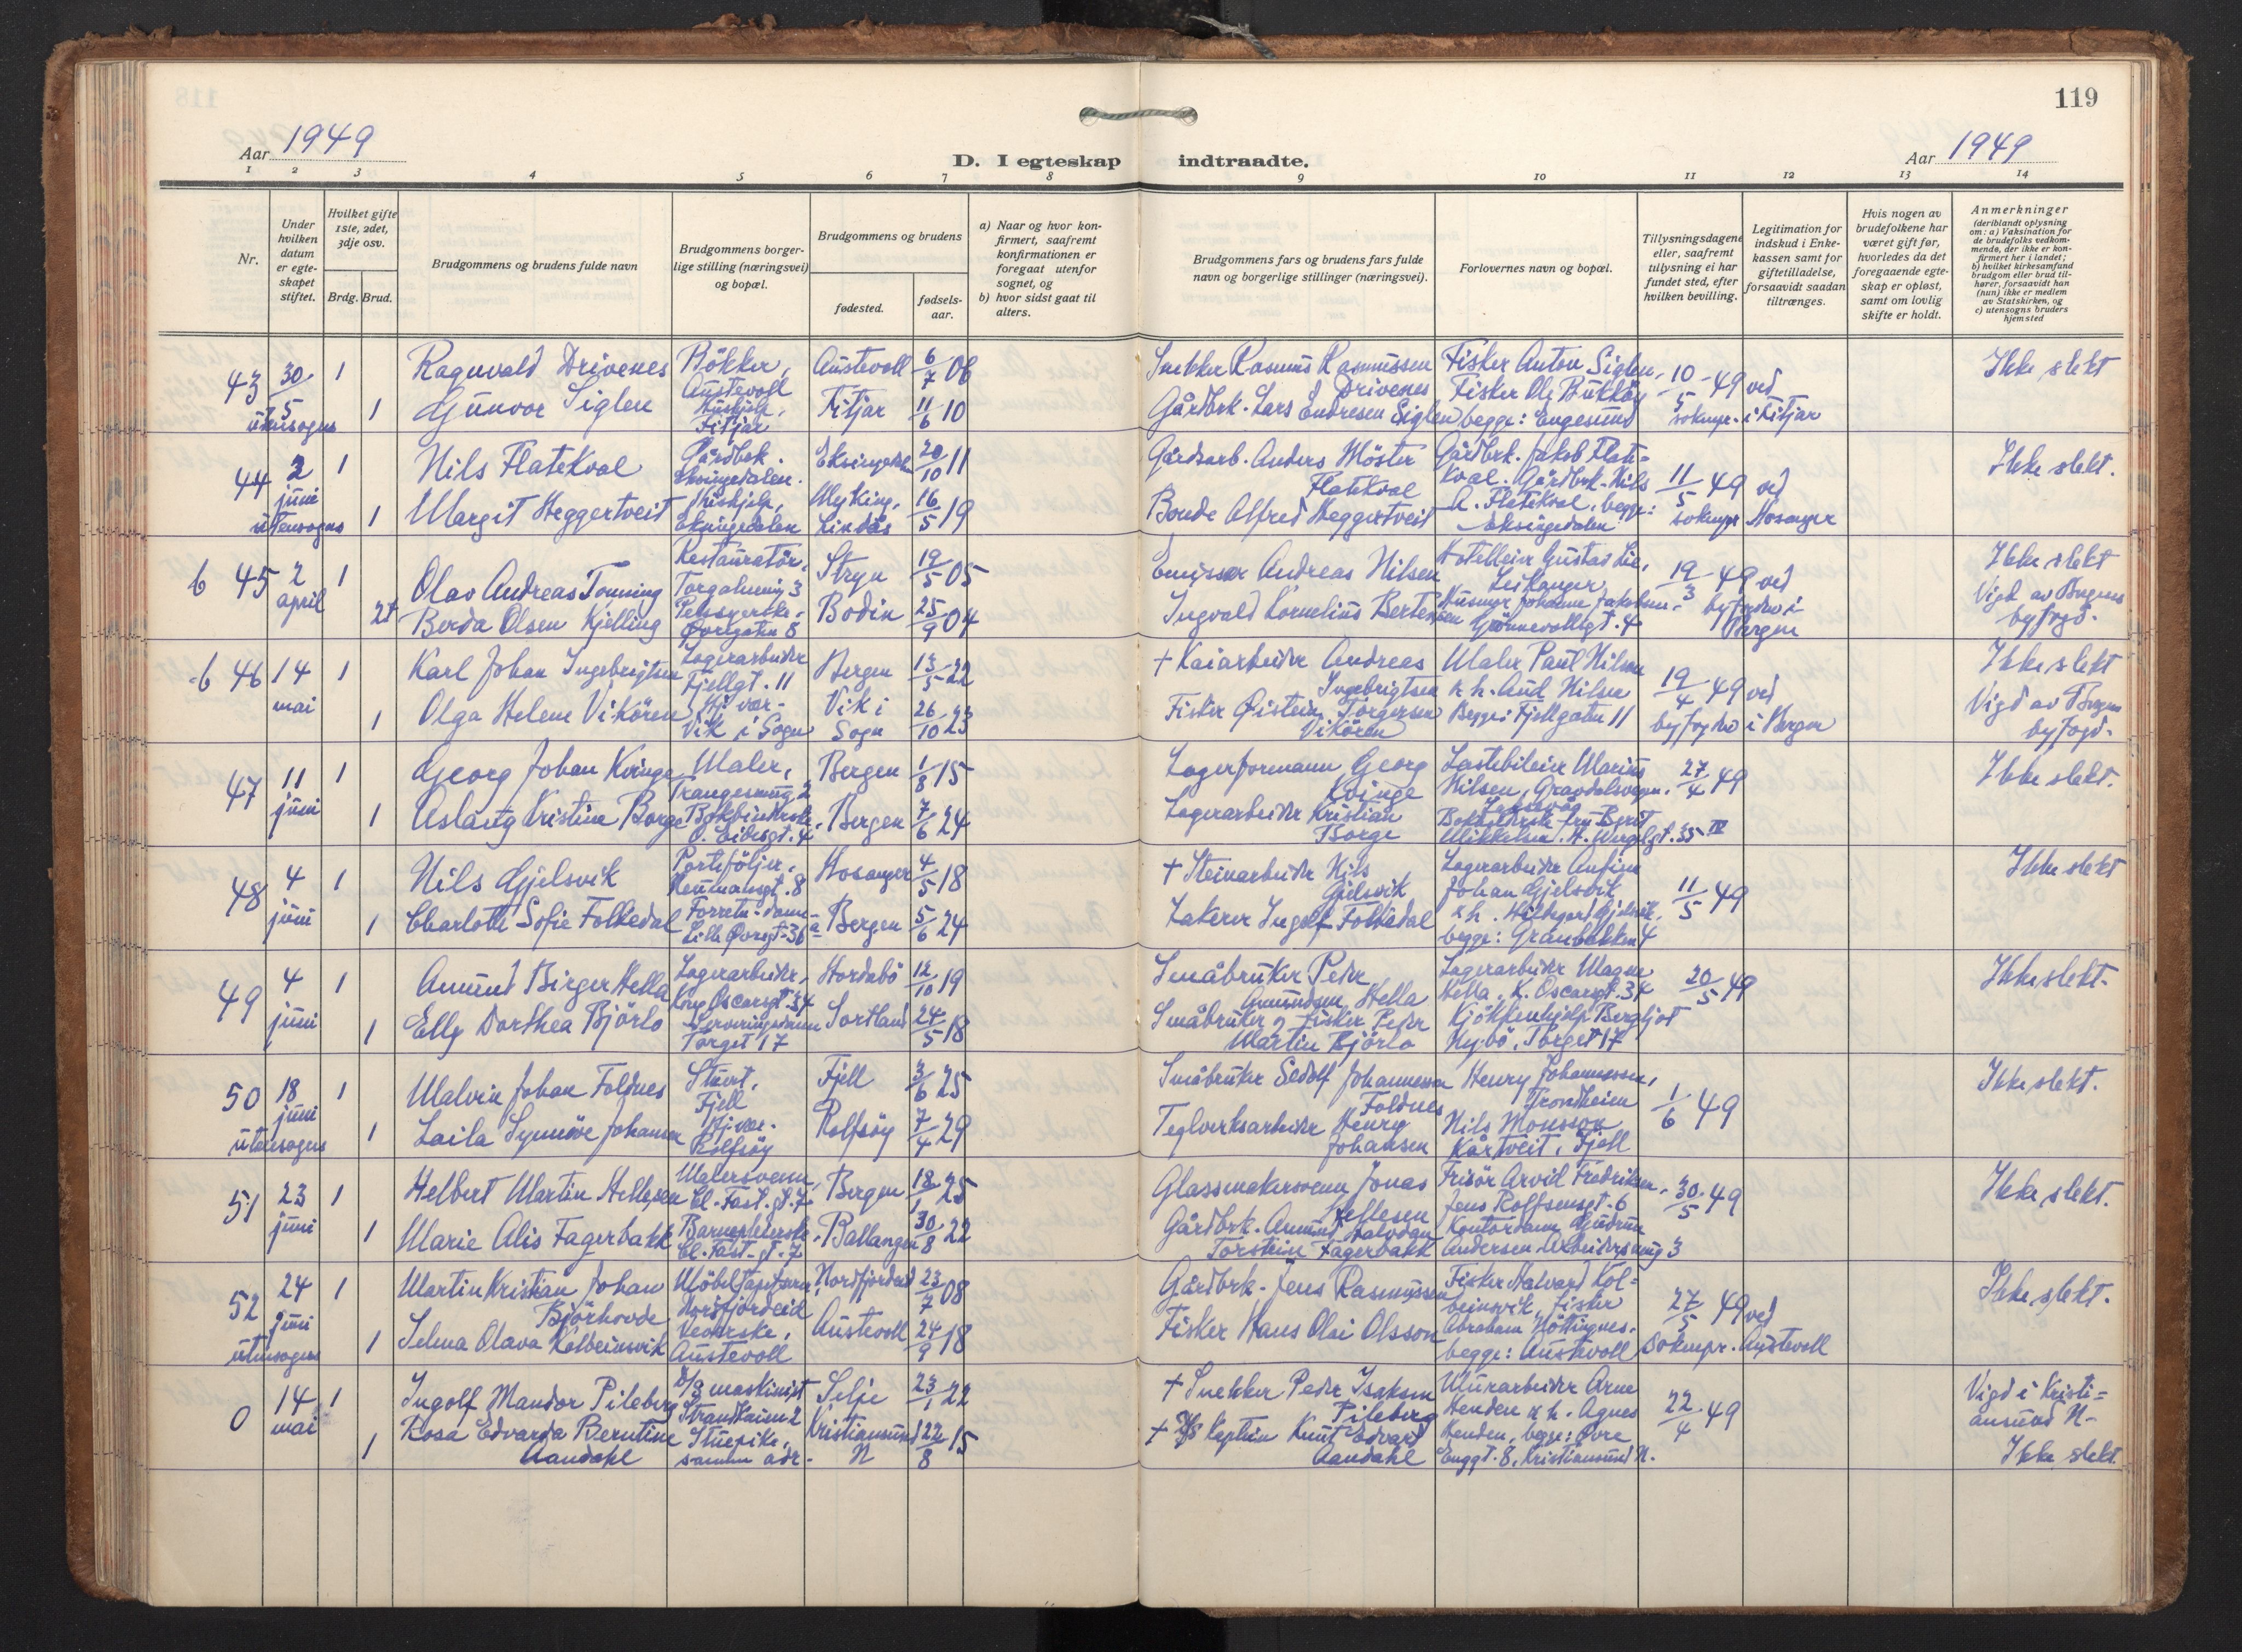 119
Aar 1949
D. I egteskap indtraadte.
Aar 1949
1 2 3 4 5 6 7 8 9 10 11 12 13 14
Nr.
Under
hvilken
datum
er egte-
skapet
stiftet.
Hvilket gifte
1ste, 2det,
3dje osv.
Brdg. Brud.
Brudgommens og brudens fulde navn
Brudgommens borger-
lige stilling (næringsvei)
og bopæl.
Brudgommens og brudens
fødested.
fødsels-
aar.
a) Naar og hvor kon-
firmert, saafremt
konfirmationen er
foregaat utenfor
sognet, og
b) hvor sidst gaat til
alters.
Brudgommens fars og brudens fars fulde
navn og borgerlige stillinger (næringsvei).
Forlovernes navn og bopæl.
Tillysningsdagene
eller, saafremt
tillysning ei har
fundet sted, efter
hvilken bevilling.
Legitimation for
indskud i Enke-
kassen samt for
giftetilladelse,
forsaavidt saadan
tiltrænges.
Hvis nogen av
brudefolkene har
været gift før,
hvorledes da det
foregaaende egte-
skap er opløst,
samt om lovlig
skifte er holdt.
Anmerkninger
(deriblandt oplysning
om: a) Vaksination for
de brudefolks vedkom-
mende, der ikke er kon-
firmert her i landet;
b) hvilket kirkesamfund
brudgom eller brud til-
hører, forsaavidt han
(hun) ikke er medlem
av Statskirken, og
c) utensogns bruders
hjemsted
43 30/5 1 Ragnvald Drivenes Bökker, Austevoll 6/7 06 Snekker Rasmus Rasmussen Fisker Anton Siglen, 10/5-49 ved Ikke slekt
Austevoll Drivenes Fisker Ole Bukköy
utensogns 1 Gunvor Siglen Hushjelp, Fitjar 11/6 10 Gårdbrk. Lars Endresen Siglen begge: Engesund soknepr. i Fitjar
Fitjar
44 2 juni 1 Nils Flatekval Gårdbrk. Eksingedalen 20/10 11 Gårdsarb. Anders Möster Gårdbrk. Jakob Flate- 11/5 49 ved Ikke slekt.
Eksingedalen. Flatekval kval. Gårdbrk. Nils
utensogns 1 Margit Heggertveit Hushjelp, Myking, 16/5 19 Bonde Alfred Heggertveit A. Flatekval, begge: soknepr. Hosanger
Eksingedalen Lindås Eksingedalen
6 45 2 april 1 Olav Andreas Tonning Restauratör, Stryn 19/5 05 Emissær Andreas Nilsen Hotelleier Gustav Lie, 19/3 49 ved Ikke slekt
Torgalmenning 3 Leikanger Vigd av Bergens
2t Berda Olsen Kjelling Pelssyerske, Bodin 25/9 04 Ingvald Kornelius Bertesen Husmor Johanne Jakobsen, byfogden i byfogd.
Øvregaten 8 Grönnevollgt. 4 Bergen
6 46 14 mai 1 Karl Johan Ingebrigtsen Lagerarbeider Bergen 13/5 22 + Kaiarbeider Andreas Maler Paul Nilsen 19/4 49 ved Ikke slekt
Fjellgt. 11 Ingebrigtsen k h. Aud Nilsen Vigd av Bergens
1 Olga Helene Vikören Hj. vær. Vik i 26/10 23 Fisker Øistein Torgersen Begge: Fjellgaten 11 byfogden i Bergen byfogd.
Vik i Sogn Sogn Vikören
47 11 juni 1 Georg Johan Kvinge Maler, Bergen 1/8 15 Lagerformann Georg Lastebileier Marius 27/4 49 Ikke slekt.
Trangesmug 2 Kvinge Nilsen, Gravdalsvegen.
1 Aslaug Kristine Borge Bokbinderske, Bergen 7/6 24 Lagerarbeider Kristian Laksevåg
O. Eidesgt. 4 Borge Mikkelsen, H. Wergelgt. 35 IV
48 4 juni 1 Nils Gjelsvik Porteföljer, Hosanger 4/5 18 + Steinarbeider Nils Lagerarbeider Anfinn 11/5 49 Ikke slekt
Neumannsgt. 8 Gjelsvik Johan Gjelsvik
1 Charlotte Sofie Folkedal Forretn. dame Bergen 5/6 24 Lakerer Ingolf Folkedal k h. Hildegard Gjelsvik,
Lille Øvregt. 36 a begge: Granbakken 4
49 4 juni 1 Amund Birger Hella Lagerarbeider, Hordabö 12/10 19 Småbruker Peder Lagerarbeider Magne 20/5 49 Ikke slekt.
Kong Oscarsgt. 34 Amundsen Hella Hella, K. Oscarsgt. 34
1 Elly Dorthea Björlo Serveringsdame Sortland 24/5 18 Småbruker og fisker Peder Kjökkenhjelp Bergljot
Torget 17 Martin Björlo Nybö, Torget 17
50 18 juni 1 Malvin Johan Foldnes Stuert, Fjell 3/6 25 Småbruker Sedolf Johannessen Henry Johannessen, 1/6 49 Ikke slekt.
Fjell Foldnes Trondheim
utensogns 1 Laila Synnöve Johansen Hj. vær. Rolfsöy 7/4 29 Teglverksarbeider Henry Nils Monsson
Rolfsöy Johansen Kårtveit, Fjell
51 23 juni 1 Helbert Martin Hellesen Malersvenn, Bergen 18/1 25 Glassmakersvenn Jonas Frisör Arvid Fredriksen, 30/5 49 Ikke slekt.
Cl. Fast. gt. 7 Hellesen Jens Rolfsensgt. 6
1 Marie Alis Fagerbakk Barnepleierske, Ballangen 30/8 22 Gårdbrk. Amund Halvdan Kontordame Gudrun
Cl. Fast. gt. 7 Torstein Fagerbakk Andersen Arbeidersmug 3
52 24 juni 1 Martin Kristian Johan Möbeltapetserer, Nordfjordeid 23/7 08 Gårdbrk. Jens Rasmussen Fisker Halvard Kol- 27/5 49 ved Ikke slekt.
Björhovde Nordfjordeid beinsvik, fisker
utensogns 1 Selma Olava Kolbeinsvik Veverske, Austevoll 24/9 18 Fisker Hans Olai Olsson Abraham
Austevoll begge: Austevoll soknepr. Austevoll
0 14 mai 1 Ingolf Mandor Pileberg D/S maskinist Selje 23/1 22 + Snekker Peder Isaksen Murarbeider Arne 22/4 49 Vigd i Kristi-
Strandkaien 2 Pileberg Henden k h. Agnes ansund N.
1 Rosa Edvarda Berntine Stuepike, Kristiansund 22/8 15 + Kaptein Knut Edvard Henden, begge: Øvre Ikke slekt.
Aandahl samme adr. N Aandahl Enggt. 8, Kristiansund N.